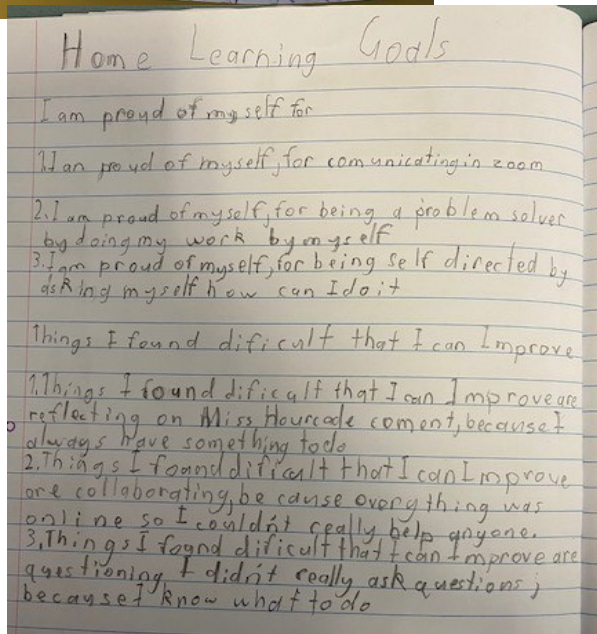 Home Learning Goals
I am proud of my self for
1.I an proud of myself, for comunicating in zoom
2.I am proud of myself, for being a problem solver
by doing my work by myself
3.I am proud of myself, for being self directed by
asking myself how can I do it
Things I found dificult that I can Improve
1.Things I found dificult that I can Improve are
reflecting on Miss Hourcade coment, because I
always have something to do
2.Things I found dificult that I can Improve
are collaborating, be cause every thing was
online so I couldn't really help anyone.
3.Things I found dificult that I can Improve are
questioning I didn't really ask questions,
because I know what to do